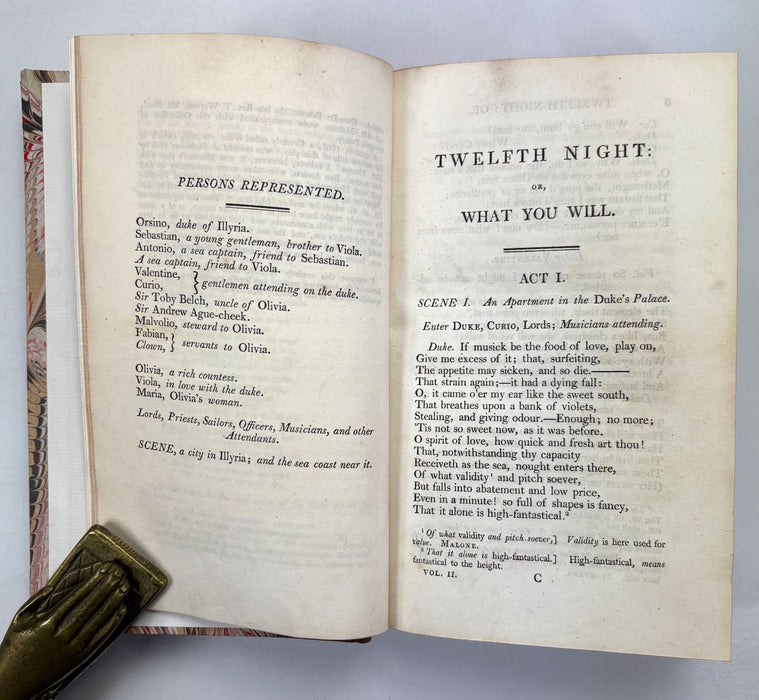 PERSONS REPRESENTED.
Orsino, duke of Illyria.
Sebastian, a young gentleman, brother to Viola.
Antonio, a sea captain, friend to Sebastian.
A sea captain, friend to Viola.
Valentine,
Curio, } gentlemen attending on the duke.
Sir Toby Belch, uncle of Olivia.
Sir Andrew Ague-cheek.
Malvolio, steward to Olivia.
Fabian,
Clown, } servants to Olivia.
Olivia, a rich countess.
Viola, in love with the duke.
Maria, Olivia's woman.
Lords, Priests, Sailors, Officers, Musicians, and other
Attendants.
SCENE, a city in Illyria; and the sea coast near it.
TWELFTH NIGHT:
OR,
WHAT YOU WILL.
ACT I.
SCENE I. An Apartment in the Duke's Palace.
Enter DUKE, CURIO, Lords; Musicians attending.
Duke. If musick be the food of love, play on,
Give me excess of it; that, surfeiting,
The appetite may sicken, and so die.———
That strain again;—it had a dying fall:
O, it came o'er my ear like the sweet south,
That breathes upon a bank of violets,
Stealing, and giving odour.—Enough; no more;
'Tis not so sweet now, as it was before.
O spirit of love, how quick and fresh art thou!
That, notwithstanding thy capacity
Receiveth as the sea, nought enters there,
Of what validity¹ and pitch soever,
But falls into abatement and low price,
Even in a minute! so full of shapes is fancy,
That it alone is high-fantastical.²
¹ Of what validity and pitch soever,] Validity is here used for
value. MALONE.
² That it alone is high-fantastical.] High-fantastical, means
fantastical to the height.
VOL. II. C